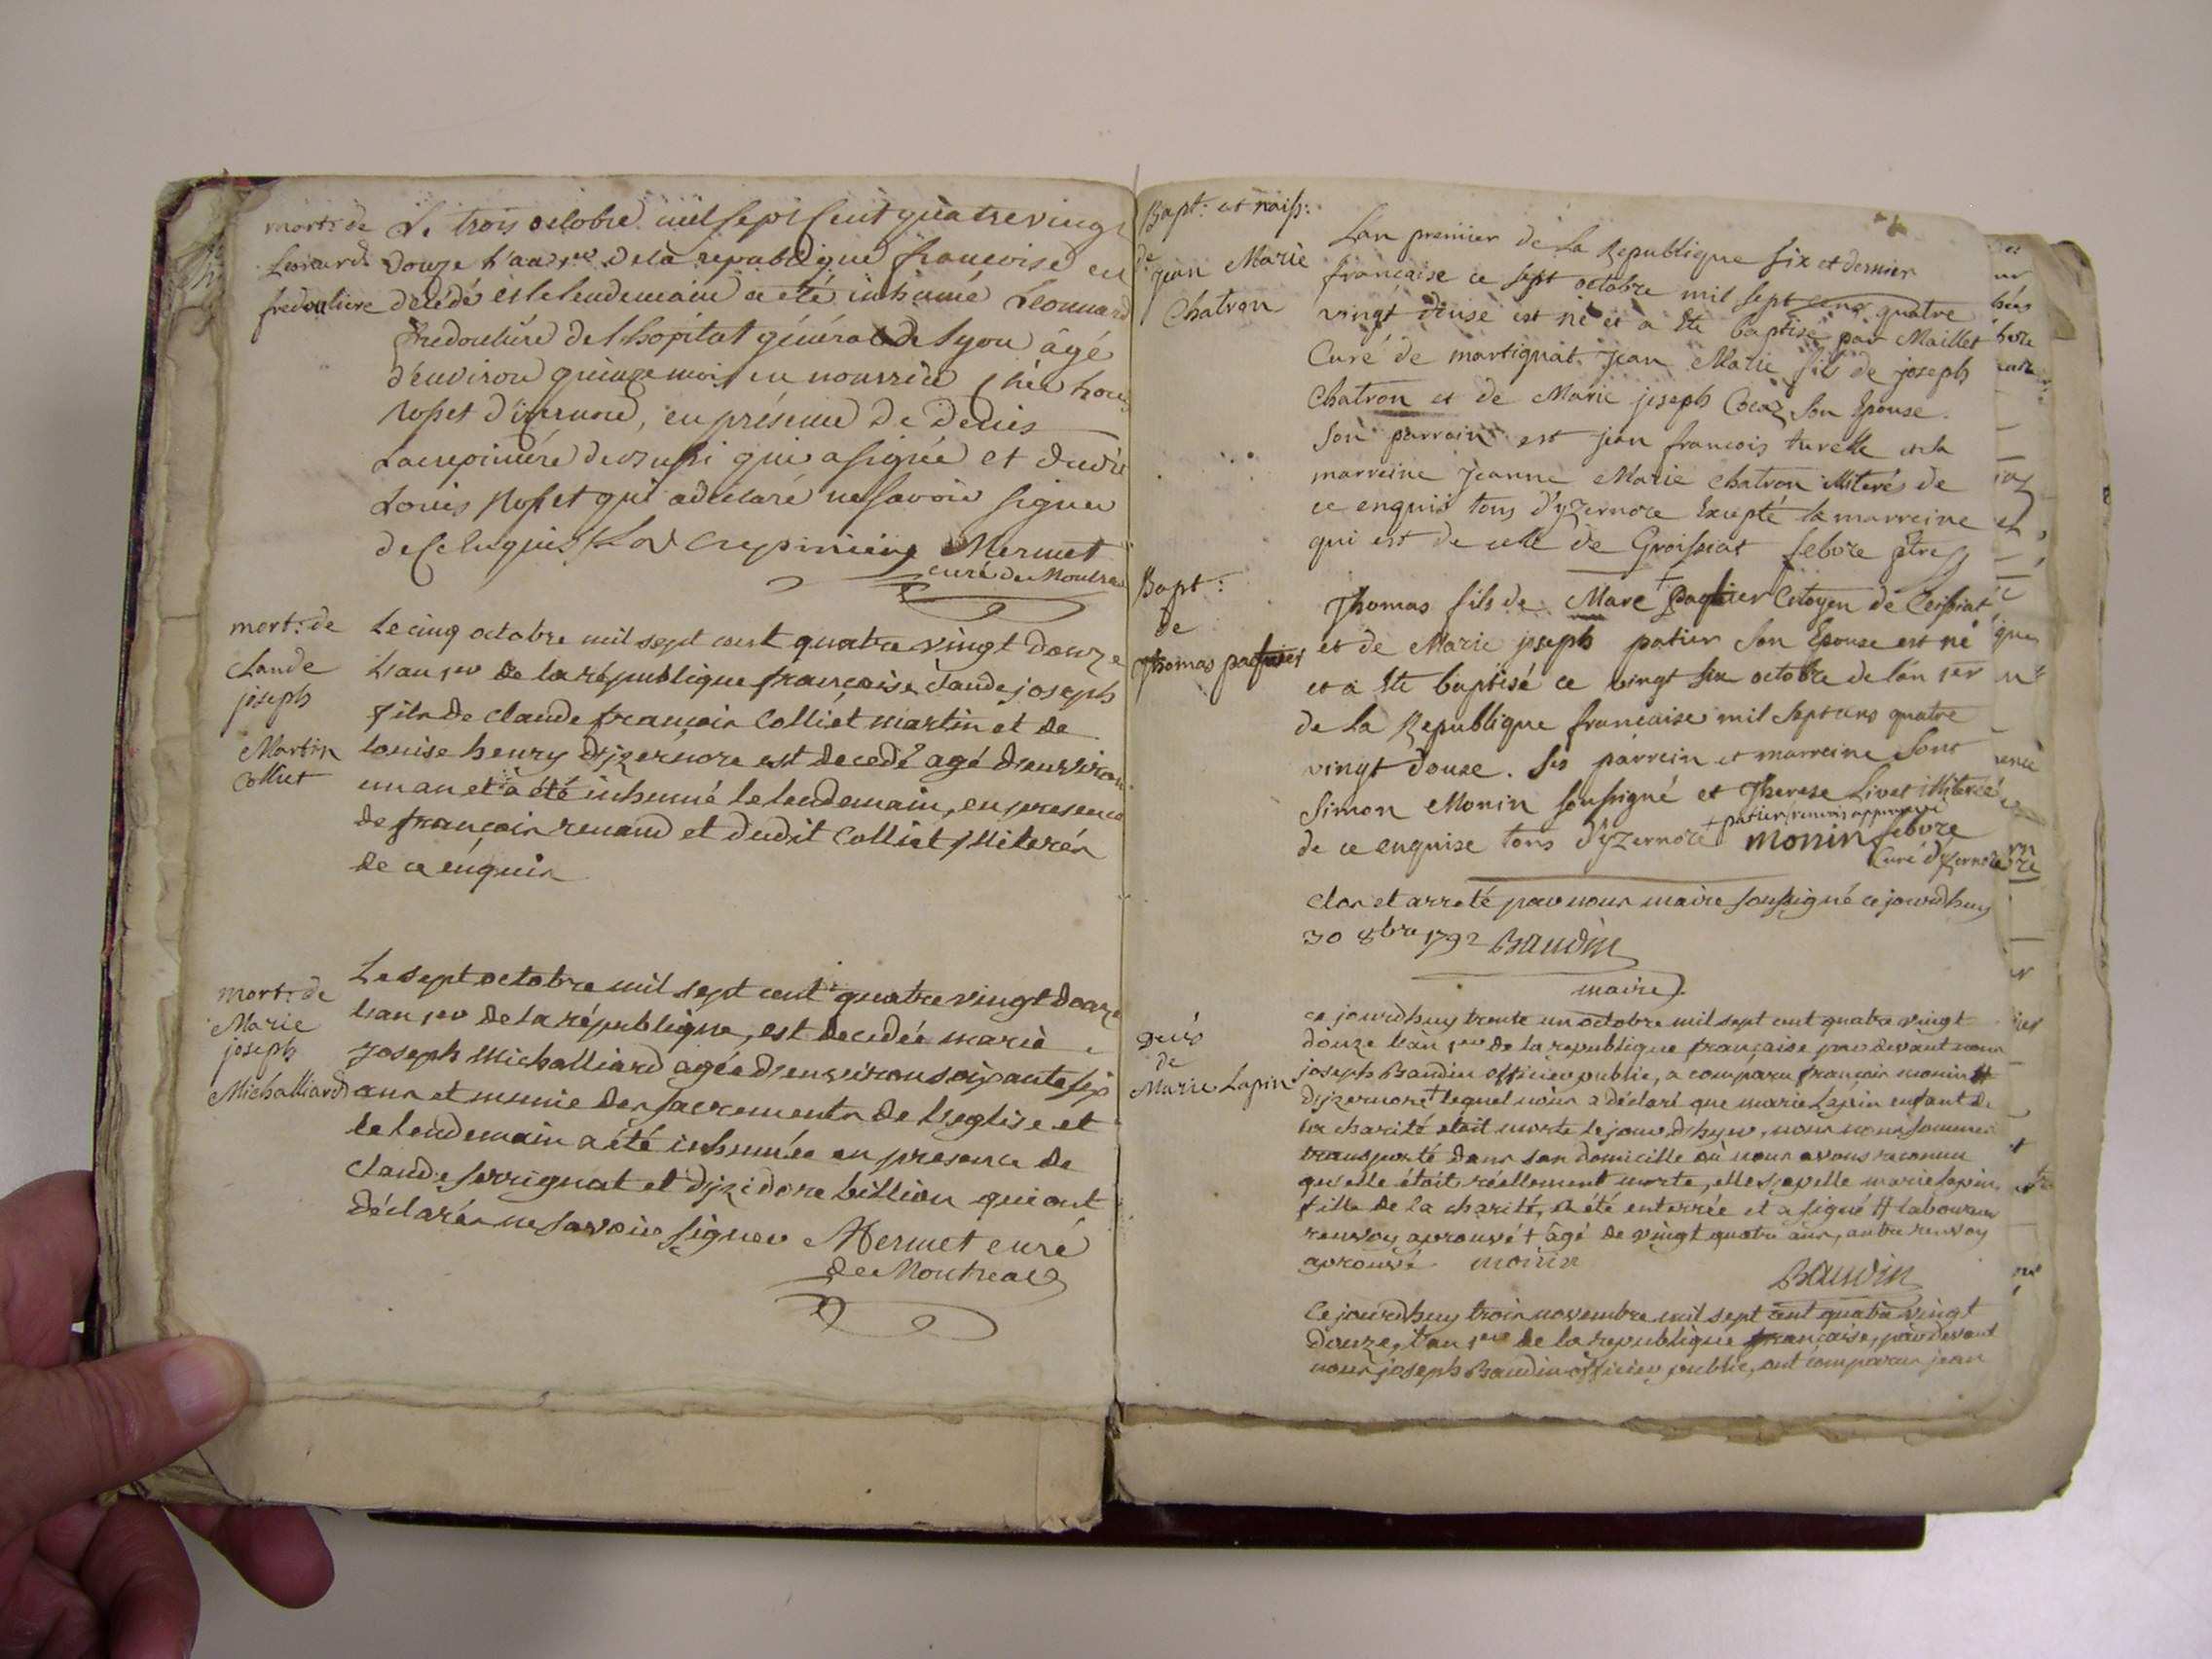 mort: de
Leonard
fredouliere
Le trois octobre mil sept cent quatre vingt
douze l'an 1er de la republique francoise est
décédé et le lendemain a été inhumé Leonnard
fredouliere de l'hopital général de Lyon âgé
d'environ quinze mois en nourrice chéz Louis
Rosset d'izernore, en présence de Denis
Lacrepiniere dudit qui a signé et dudit
Louis Rosset qui a déclaré ne savoir signer
de ce enquis La Crepiniere Mermet
curé de Montreal
mort: de
claude
joseph
Martin
Colliet
Le cinq octobre mil sept cent quatre vingt douze
L'an 1er de la république française, claude joseph
fils de claude françois Colliet martin et de
louise henry d'jzernore est decedé agé d'environ
un an et a été inhumé le lendemain, en presence
de françois renaud et dudit Colliet jlliterés
de ce enquis
mort: de
Marie
joseph
Michalliard
Le sept octobre mil sept cent quatre vingt douze
L'an 1er de la république, est decedée marie
joseph Michalliard agée d'environ soixante six
ans et munie des sacrements de L'eglise et
le lendemain a été inhumée en presence de
claude serrignat et d'jzidore billion qui ont
déclarés ne savoir signer Mermet curé
de Montreal
Bapt: et naiss:
de
jean Marie
Chatron
Lan premier de la Republique six et dernier
francaise ce sept octobre mil sept cens quatre
vingt douse est né et a été baptisé par Maillet
Curé de martignat jean Marie fils de joseph
Chatron et de Marie joseph Cocaz son Epouse.
Son parrain est jean francois turelle et la
marreine jeanne Marie chatron illiterés de
ce enquis tous d'yzernore Excepté la marreine
qui est de celle de Groissiat febvre ptre
Bapt:
de
Thomas paquier
Thomas fils de Marc + paquier Citoyen de Ceissiat
et de Marie joseph patier son Epouse est né
et a été baptisé ce vingt six octobre de lan 1er
de la Republique francaise mil sept cens quatre
vingt douse. Ses parrein et marreine sont
Simon Monin soussigné et Therese Livet illiterée
de ce enquise tous d'yzernore + patier/renvoi approuvé monin febvre
Curé d'yzernore
clos et arreté par nous maire soussigné ce jourdhuy
30 8bre 1792 Baudin
maire
Décés
de
Marie Lapin
ce jourdhuy trente un octobre mil sept cent quatre vingt
douze L'an 1er de la republique française par devant nous
joseph Baudin officier public, a comparu françois monin #
d'jzernore + lequel nous a déclaré que marie Lapin enfant de
la charité etait morte le jour d'hyer, nous nous sommes
transporté dans son domicille ou nous avons reconnu
qu'elle étoit réellement morte, elle s'apelle marie lapin
fille de la charité, a été enterrée et a signé # laboureur
renvoy aprouvé + âgé de vingt quatre ans, autre renvoy
aprouvé monin
Baudin
Ce jourdhuy trois novembre mil sept cent quatre vingt
douze, l'an 1er de la republique française, par devant
nous joseph Baudin officier public, ont comparu jean